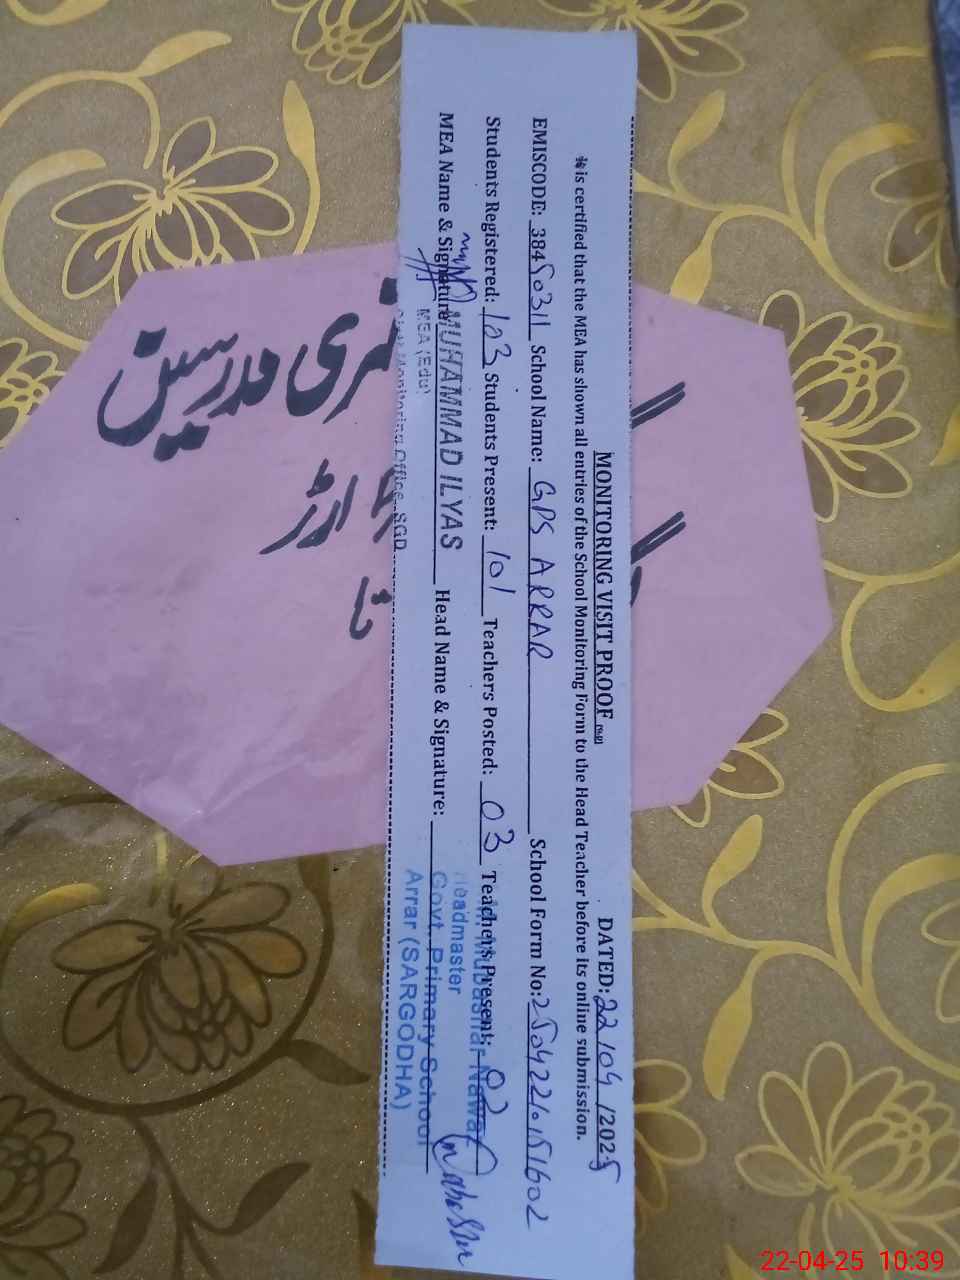 MONITORING VISIT PROOF
DATED: 22/04/2025
is certified that the MEA has shown all entries of the School Monitoring Form to the Head Teacher before its online submission.
EMISCODE: 38450311 School Name: GPS ARRAR School Form No: 2504221015 1602
Students Registered: 103 Students Present: 101 Teachers Posted: 03 Teachers Present: 02
MEA Name & Signature: MUHAMMAD ILYAS Head Name & Signature:
MEA (Edu)
Monitoring Office, SGD
Mubashar Nawaz
Headmaster
Govt. Primary School
Arrar (SARGODHA)
مدرسین
22-04-25 10:39